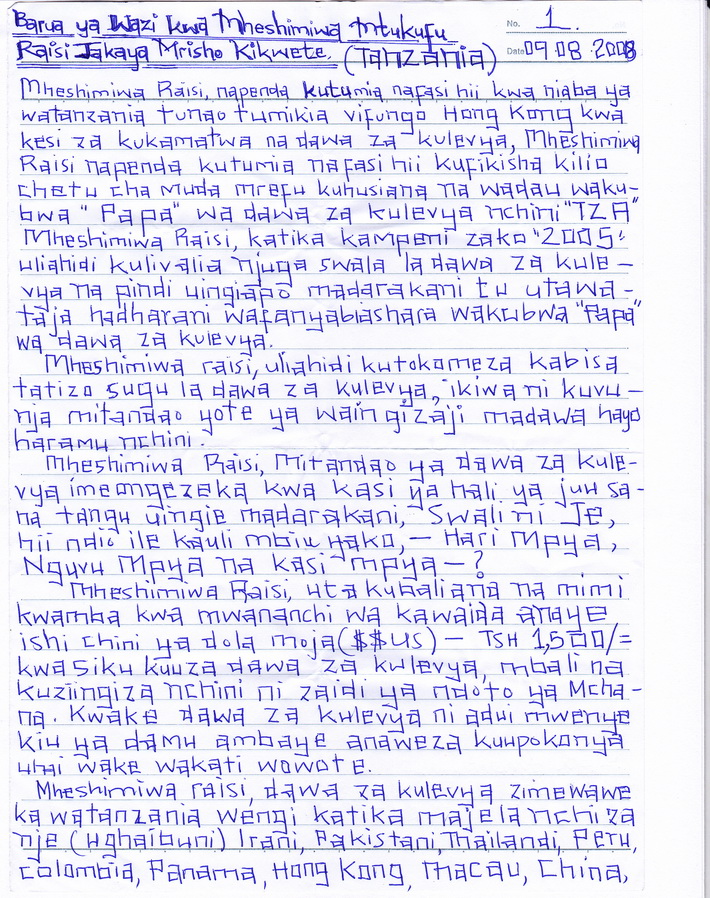 Barua ya Wazi kwa Mheshimiwa Mtukufu
No. 1.
Raisi Jakaya Mrisho Kikwete. (Tanzania)
Date 09.08.2008
Mheshimiwa Raisi, napenda kutumia nafasi hii kwa niaba ya
watanzania tunao tumikia vifungo Hong Kong kwa
kesi za kukamatwa na dawa za kulevya, Mheshimiwa
Raisi napenda kutumia nafasi hii kufikisha kilio
chetu cha muda mrefu kuhusiana na wadau waku-
bwa "Papa" wa dawa za kulevya nchini "TZA"
Mheshimiwa Raisi, katika kampeni zako "2005"
uliahidi kulivalia njuga swala la dawa za kule-
vya na pindi uingiapo madarakani tu utawa-
taja hadharani wafanyabiashara wakubwa "Papa"
wa dawa za kulevya.
Mheshimiwa raisi, uliahidi kutokomeza kabisa
tatizo sugu la dawa za kulevya, ikiwa ni kuvu-
nja mitandao yote ya waingizaji madawa hayo
haramu nchini.
Mheshimiwa Raisi, Mitandao ya dawa za kule-
vya imeongezeka kwa kasi ya hali ya juu sa-
na tangu uingie madarakani, Swali ni Je,
hii ndio ile kauli mbiu yako, - Hari Mpya,
Nguvu Mpya na kasi mpya - ?
Mheshimiwa Raisi, uta kubaliana na mimi
kwamba kwa mwananchi wa kawaida anaye
ishi chini ya dola moja ($$US) - TSH 1,500/=
kwa siku kuuza dawa za kulevya, mbali na
kuziingiza nchini ni zaidi ya ndoto ya Mcha-
na. Kwake dawa za kulevya ni adui mwenye
kiu ya damu ambaye anaweza kuupokonya
uhai wake wakati wowote.
Mheshimiwa raisi, dawa za kulevya zimewawe
ka watanzania wengi katika majela nchi za
nje (Ughaibuni) Irani, Pakistani, Thailandi, Peru,
Colombia, Panama, Hong Kong, Macau, China,